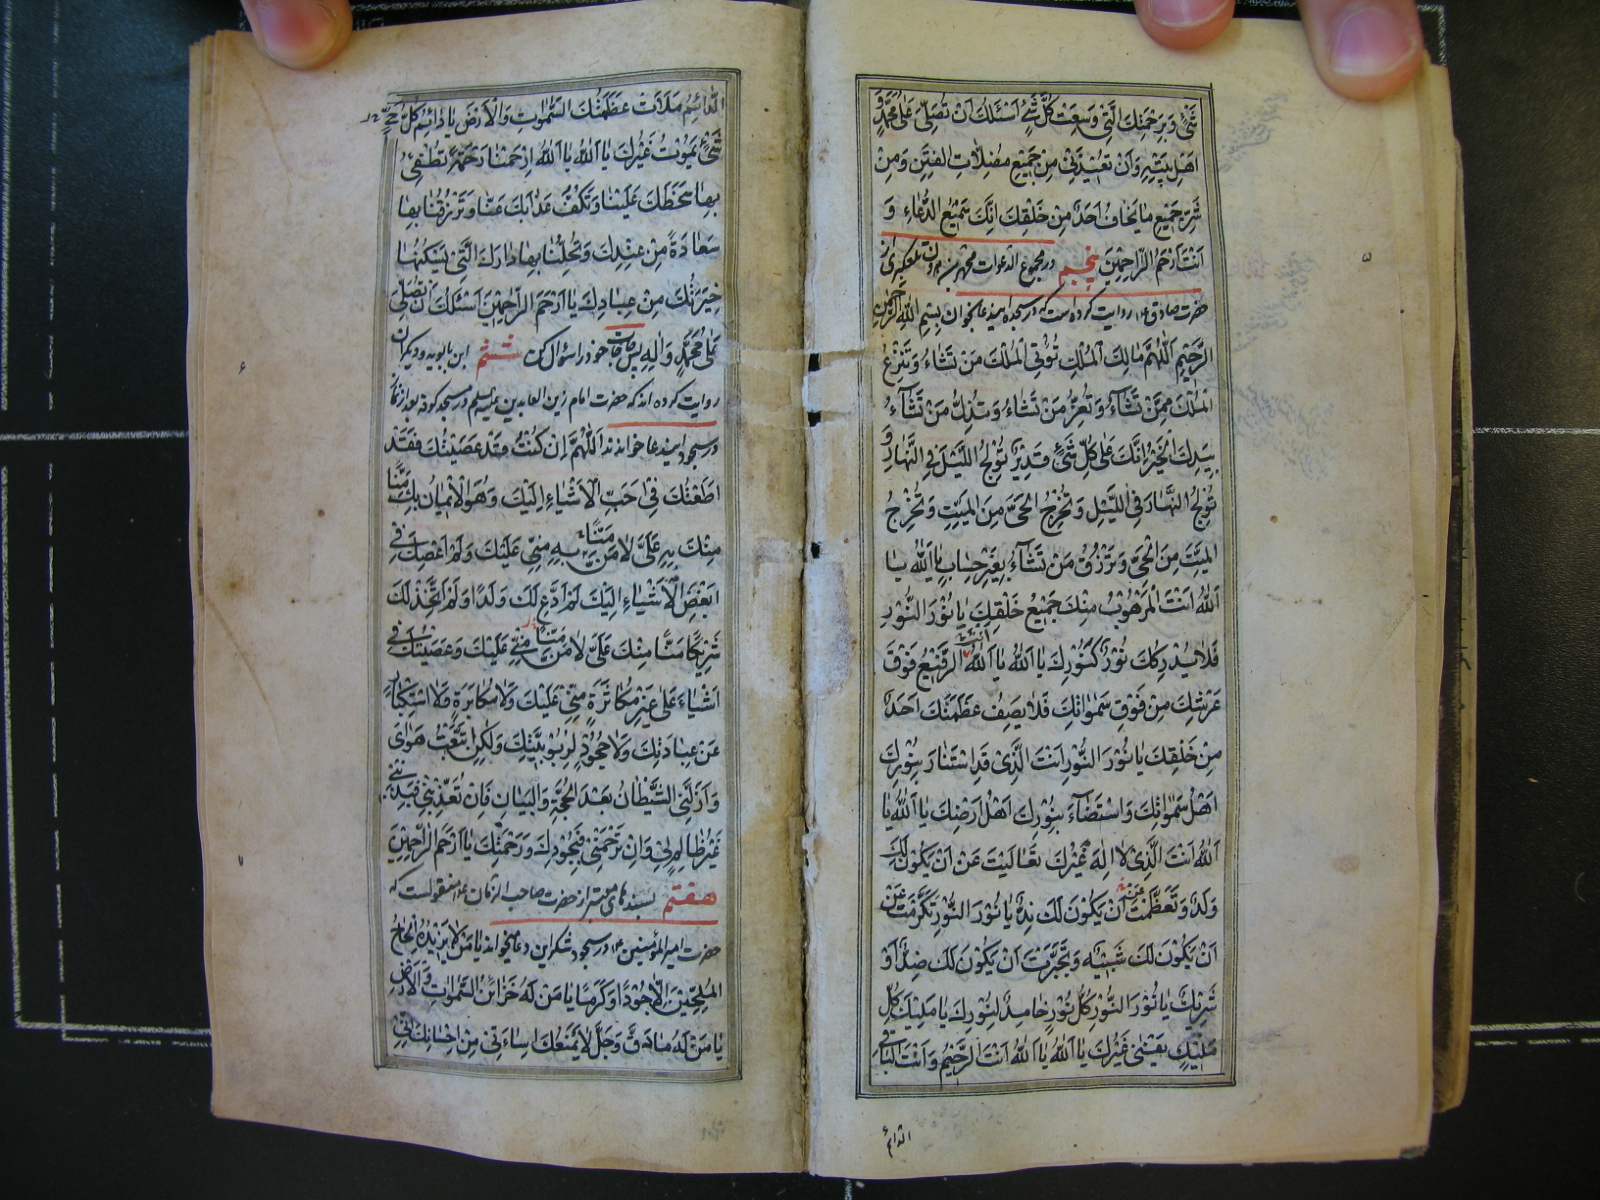 شَیْءٍ وَ بِرَحْمَتِكَ الَّتِی وَسِعَتْ كُلَّ شَیْءٍ اَسْئَلُكَ اَنْ تُصَلِّیَ عَلٰی مُحَمَّدٍ وَ
اَهْلِ بَیْتِهِ وَ اَنْ تُعیذَنی مِنْ جَمیعِ مُضِلّاتِ الْفِتَنِ وَ مِنْ
شَرِّ جَمیعِ مٰا یَخٰافُ اَحَدٌ مِنْ خَلْقِكَ اِنَّكَ سَمیعُ الدُّعٰاءِ وَ
اَنْتَ اَرْحَمُ الرّٰاحِمینَ پنجم در مجموع الدعوات محمد بن هرون تلعکبری از
حضرت صادق ع روایت کرده است که در سجده این دعا بخوان بِسْمِ اللهِ الرَّحْمٰنِ
الرَّحیمِ اَللّٰهُمَّ مٰالِكَ الْمُلْكِ تُؤْتِی الْمُلْكَ مَنْ تَشٰاءُ وَ تَنْزِعُ
الْمُلْكَ مِمَّنْ تَشٰآءُ وَ تُعِزُّ مَنْ تَشٰاءُ وَ تُذِلُّ مَنْ تَشٰآءُ
بِیَدِكَ الْخَیْرُ اِنَّكَ عَلٰی كُلِّ شَیْءٍ قَدیرٌ تُولِجُ اللَّیْلَ فِی النَّهٰارِ وَ
تُولِجُ النَّهٰارَ فِی اللَّیْلِ وَ تُخْرِجُ الْحَیَّ مِنَ الْمَیِّتِ وَ تُخْرِجُ
الْمَیِّتَ مِنَ الْحَیِّ وَ تَرْزُقُ مَنْ تَشٰآءُ بِغَیْرِ حِسٰابٍ یٰا اَللهُ یٰا
اَللهُ اَنْتَ الْمَرْهُوبُ مِنْكَ جَمیعُ خَلْقِكَ یٰا نُورَ النُّورِ
فَلٰا یُدْرِكُكَ نُورٌ كَنُورِكَ یٰا اَللهُ یٰا اَللهُ اَنْتَ الرَّفیعُ فَوْقَ
عَرْشِكَ مِنْ فَوْقِ سَمٰوٰاتِكَ فَلٰا یَصِفُ عَظَمَتَكَ اَحَدٌ
مِنْ خَلْقِكَ یٰا نُورَ النُّورِ اَنْتَ الَّذی قَدِ اسْتَنٰارَ بِنُورِكَ
اَهْلُ سَمٰوٰاتِكَ وَ اسْتَضٰآءَ بِنُورِكَ اَهْلُ اَرْضِكَ یٰا اَللهُ یٰا
اَللهُ اَنْتَ الَّذی لٰا اِلٰهَ غَیْرُكَ تَعٰالَیْتَ عَنْ اَنْ یَكُونَ لَكَ
وَلَدٌ وَ تَعَظَّمْتَ عَنْ اَنْ یَكُونَ لَكَ نِدٌّ یٰا نُورَ النُّورِ تَكَرَّمْتَ عَنْ
اَنْ یَكُونَ لَكَ شَبیهٌ وَ تَجَبَّرْتَ اَنْ یَكُونَ لَكَ ضِدٌّ اَوْ
شَریكٌ یٰا نُورَ النُّورِ كُلُّ نُورٍ خٰامِدٌ لِنُورِكَ یٰا مَلیكُ كُلُّ
مَلیكٍ یَفْنٰی غَیْرُكَ یٰا اَللهُ یٰا اَللهُ اَنْتَ الرَّحیمُ وَ اَنْتَ الْبٰاقی
الدائم
۵
الدّٰائِمُ مَلَاَتْ عَظَمَتُكَ السَّمٰوٰتِ وَ الْاَرْضَ یٰا دٰائِمُ كُلُّ حَیٍّ
شَیْءٍ یَمُوتُ غَیْرُكَ یٰا اَللهُ یٰا اَللهُ اِرْحَمْنٰا رَحْمَةً تُطْفِئُ
بِهٰا سَخَطَكَ عَلَیْنٰا وَ تَكُفُّ عَذٰابَكَ عَنّٰا وَ تَرْزُقُنٰا بِهٰا
سَعٰادَةً مِنْ عِنْدِكَ وَ تُحِلُّنٰا بِهٰا دٰارَكَ الَّتی تَسْكُنُهٰا
خِیَرَتُكَ مِنْ عِبٰادِكَ یٰا اَرْحَمَ الرّٰاحِمینَ اَسْئَلُكَ اَنْ تُصَلِّیَ
عَلٰی مُحَمَّدٍ وَ اٰلِهِ پس حاجات خود را سؤال کن ششم ابن بابویه و دیگران
روایت کرده اند که حضرت امام زین العابدین علیه السلم در مسجد کوفه بعد از نماز
در سجود این دعا خواندند اَللّٰهُمَّ اِنْ كُنْتُ قَدْ عَصَیْتُكَ فَقَدْ
اَطَعْتُكَ فی اَحَبِّ الْاَشْیٰاءِ اِلَیْكَ وَ هُوَ الْاٖیمٰانُ بِكَ مَنّاً
مِنْكَ بِهِ عَلَیَّ لٰا مَنّاً بِهِ مِنّی عَلَیْكَ وَ لَمْ اَعْصِكَ فی
اَبْغَضِ الْاَشْیٰاءِ اِلَیْكَ لَمْ اَدَّعِ لَكَ وَلَداً وَ لَمْ اَتَّخِذْ لَكَ
شَریكاً مَنّاً مِنْكَ عَلَیَّ لٰا مَنّاً مِنّی عَلَیْكَ وَ عَصَیْتُكَ فی
اَشْیٰاءَ عَلٰی غَیْرِ مُكٰاثَرَةٍ مِنّی عَلَیْكَ وَ لٰا مُكٰابَرَةٍ وَ لَا اسْتِكْبٰارٍ
عَنْ عِبٰادَتِكَ وَ لٰا جُحُودٍ لِرُبُوبِیَّتِكَ وَ لٰكِنِ اتَّبَعْتُ هَوٰایَ
وَ اَزَلَّنِی الشَّیْطٰانُ بَعْدَ الْحُجَّةِ وَ الْبَیٰانِ فَاِنْ تُعَذِّبْنی فَبِذَنْبی
غَیْرَ ظٰالِمٍ لی وَ اِنْ تَرْحَمْنی فَبِجُودِكَ وَ رَحْمَتِكَ یٰا اَرْحَمَ الرّٰاحِمینَ
هفتم بسندهای معتبر از حضرت صاحب الزمان ع منقولست که
حضرت امیر المؤمنین ع در سجود شکر این دعا میخواند یٰا مَنْ لٰا یَزیدُهُ اِلْحٰاحُ
الْمُلِحّینَ اِلّٰا جُوداً وَ كَرَماً یٰا مَنْ لَهُ خَزٰائِنُ السَّمٰوٰتِ وَ الْاَرْضِ
یٰا مَنْ لَهُ مٰا دَقَّ وَ جَلَّ لٰا یَمْنَعُكَ اِسٰاءَتی مِنْ اِحْسٰانِكَ اِنّی
۶
۷